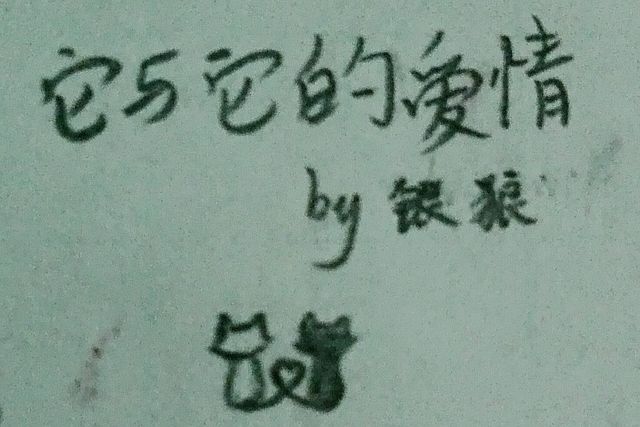 它与它的爱情
by 银狼